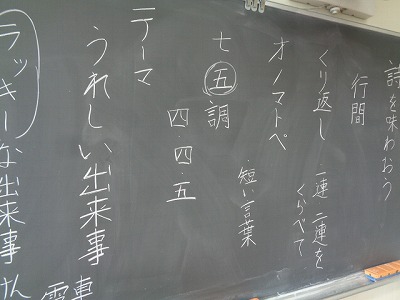 詩を味わおう
行間
くり返し 一連、二連を
くらべて
オノマトペ
・短い言葉
七五調
四・四・五
テーマ
うれしい出来事
ラッキーな出来事